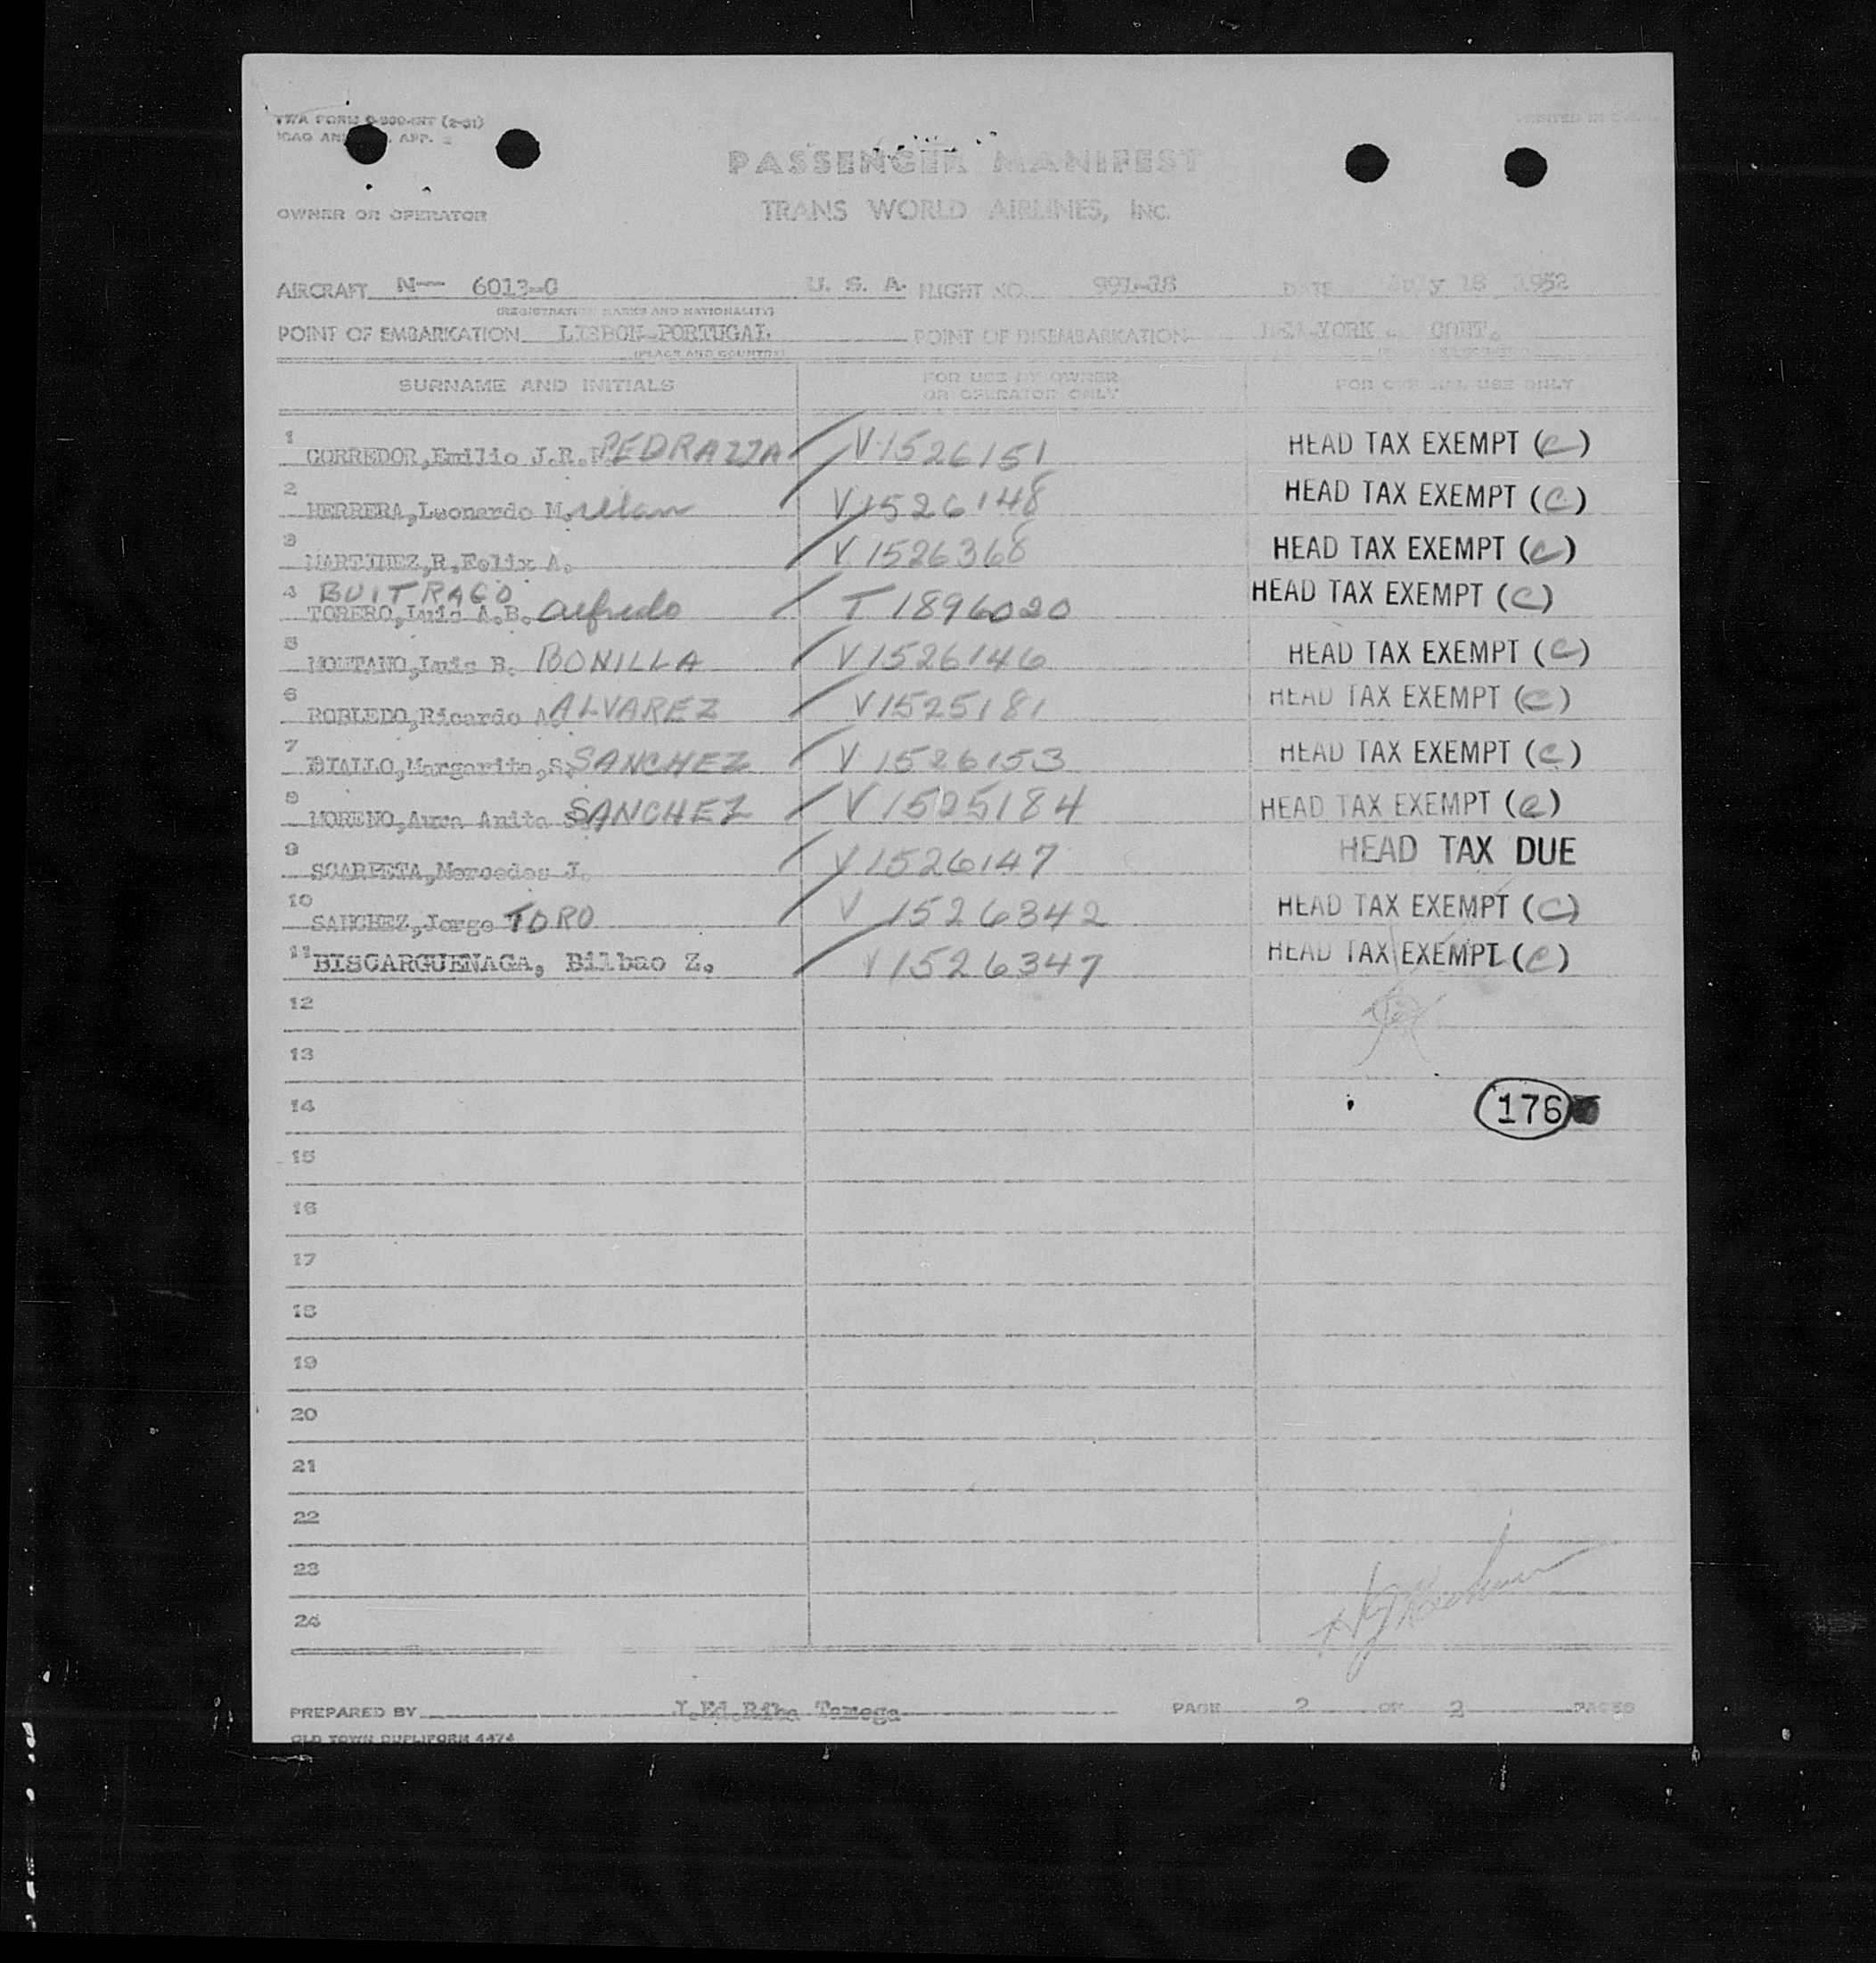 TWA FORM 0-900-INT (2-51)
ICAO AN APP. 2
PRINTED IN U.S.A.
PASSENGER MANIFEST
OWNER OR OPERATOR TRANS WORLD AIRLINES, INC.
AIRCRAFT N— 6013-C U. S. A. FLIGHT NO. 991-18 DATE July 18 1952
(REGISTRATION MARKS AND NATIONALITY)
POINT OF EMBARKATION LISBON-PORTUGAL POINT OF DISEMBARKATION NEW-YORK . CONT.
(PLACE AND COUNTRY)
SURNAME AND INITIALS FOR USE BY OWNER OR OPERATOR ONLY FOR OFFICIAL USE ONLY
1 CORREDOR,Emilio J.R. PEDRAZZA V1526151 HEAD TAX EXEMPT (C)
2 HERRERA,Leonardo M. illan V1526148 HEAD TAX EXEMPT (C)
3 MARTINEZ,R.Felix A. V1526368 HEAD TAX EXEMPT (C)
BUITRAGO
4 TORERO,Luis A.B. Alfredo T1896020 HEAD TAX EXEMPT (C)
5 MONTANO,Luis B. BONILLA V1526146 HEAD TAX EXEMPT (C)
6 ROBLEDO,Ricardo A. ALVAREZ V1525181 HEAD TAX EXEMPT (C)
7 DIALLO,Margarita,S. SANCHEZ V1526153 HEAD TAX EXEMPT (C)
8 MORENO,Aura Anita SANCHEZ V1525184 HEAD TAX EXEMPT (C)
9 SCARPETA,Mercedes J. V1526147 HEAD TAX DUE
10 SANCHEZ,Jorge TORO V1526342 HEAD TAX EXEMPT (C)
11 BISCARGUENAGA, Bilbao Z. V1526347 HEAD TAX EXEMPT (C)
12
13
14 176
15
16
17
18
19
20
21
22
23
24
PREPARED BY J.Ed.Riba Tamega PAGE 2 OF 2 PAGES
OLD TOWN DUPLIFORM 4474